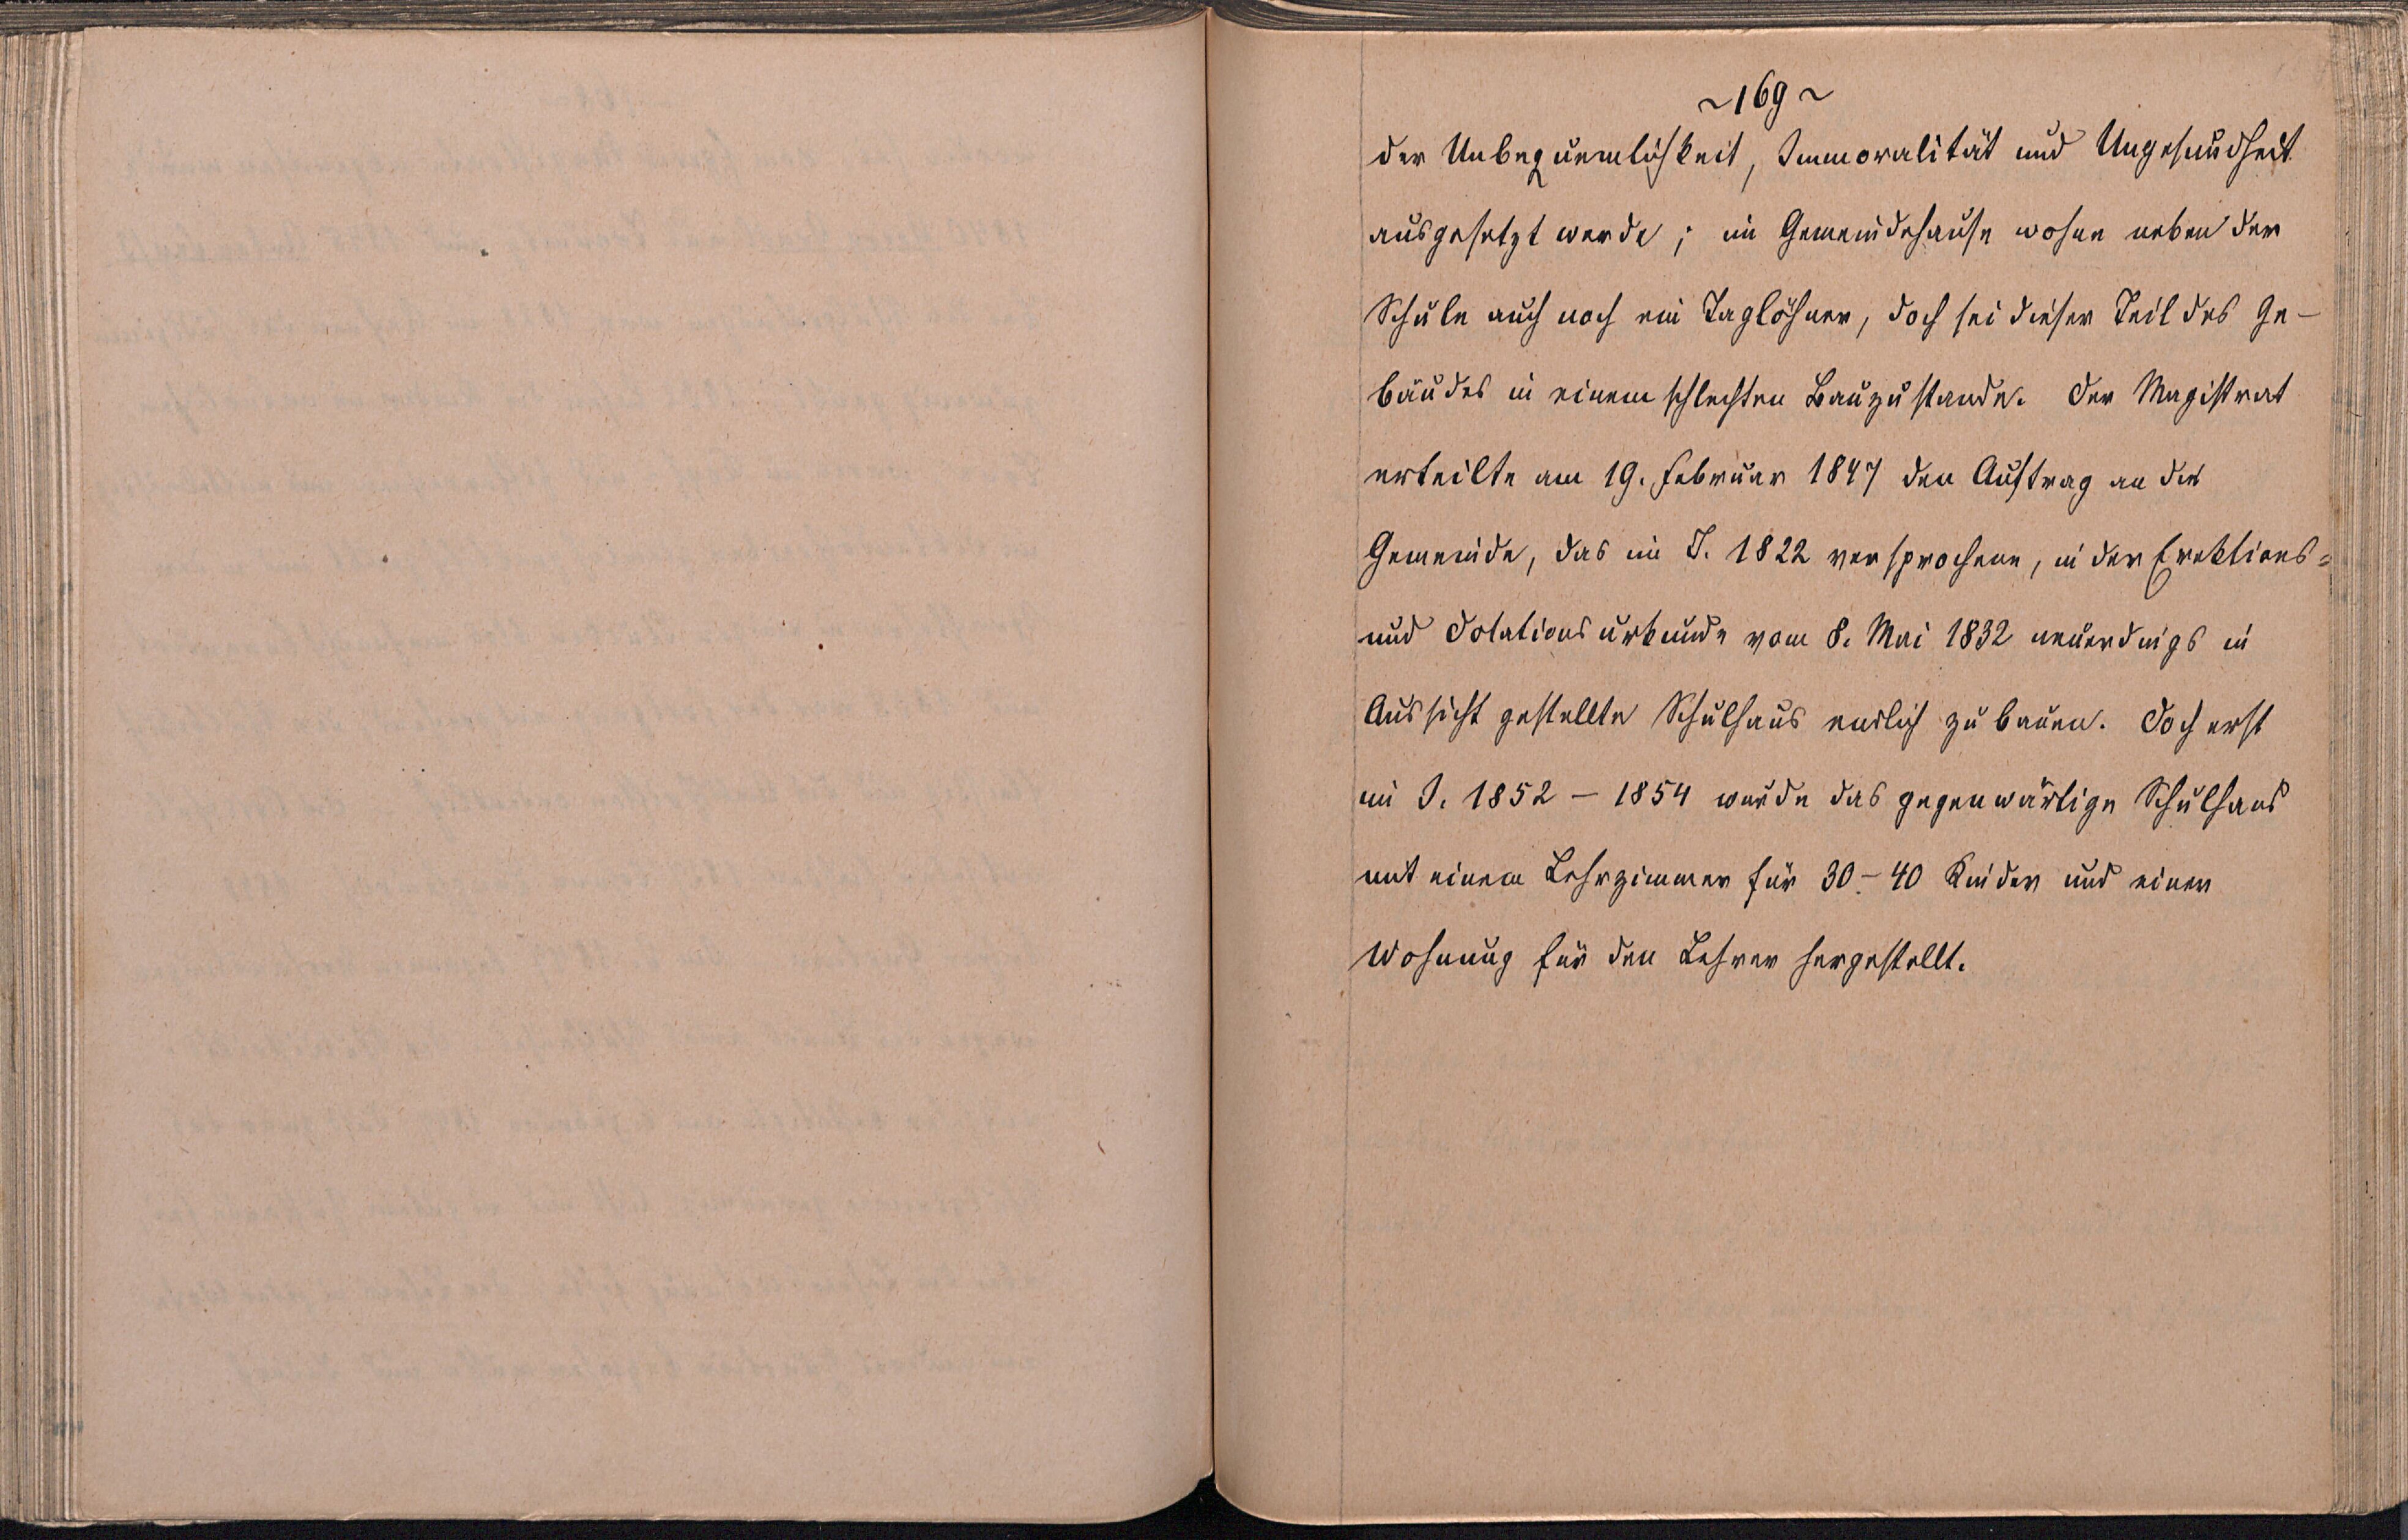 ~ 169 ~
der Unbequemlichkeit, Immoralität und Ungesundheit
ausgesetzt werde; im Gemeindehause wohne neben der
Schule auch noch ein Taglöhner, doch sei dieser Teil des Ge-
bäudes in einem schlechten Bauzustande. Der Magistrat
erteilte am 19. Februar 1847 den Auftrag an die
Gemeinde, das im J. 1822 versprochene, in der Erektions-
und Dotationsurkunde vom 8. Mai 1832 neuerdings in
Aussicht gestellte Schulhaus endlich zu bauen. Doch erst
im J. 1852 – 1854 wurde das gegenwärtige Schulhaus
mit einem Lehrzimmer für 30 – 40 Kinder und einer
Wohnung für den Lehrer hergestellt.